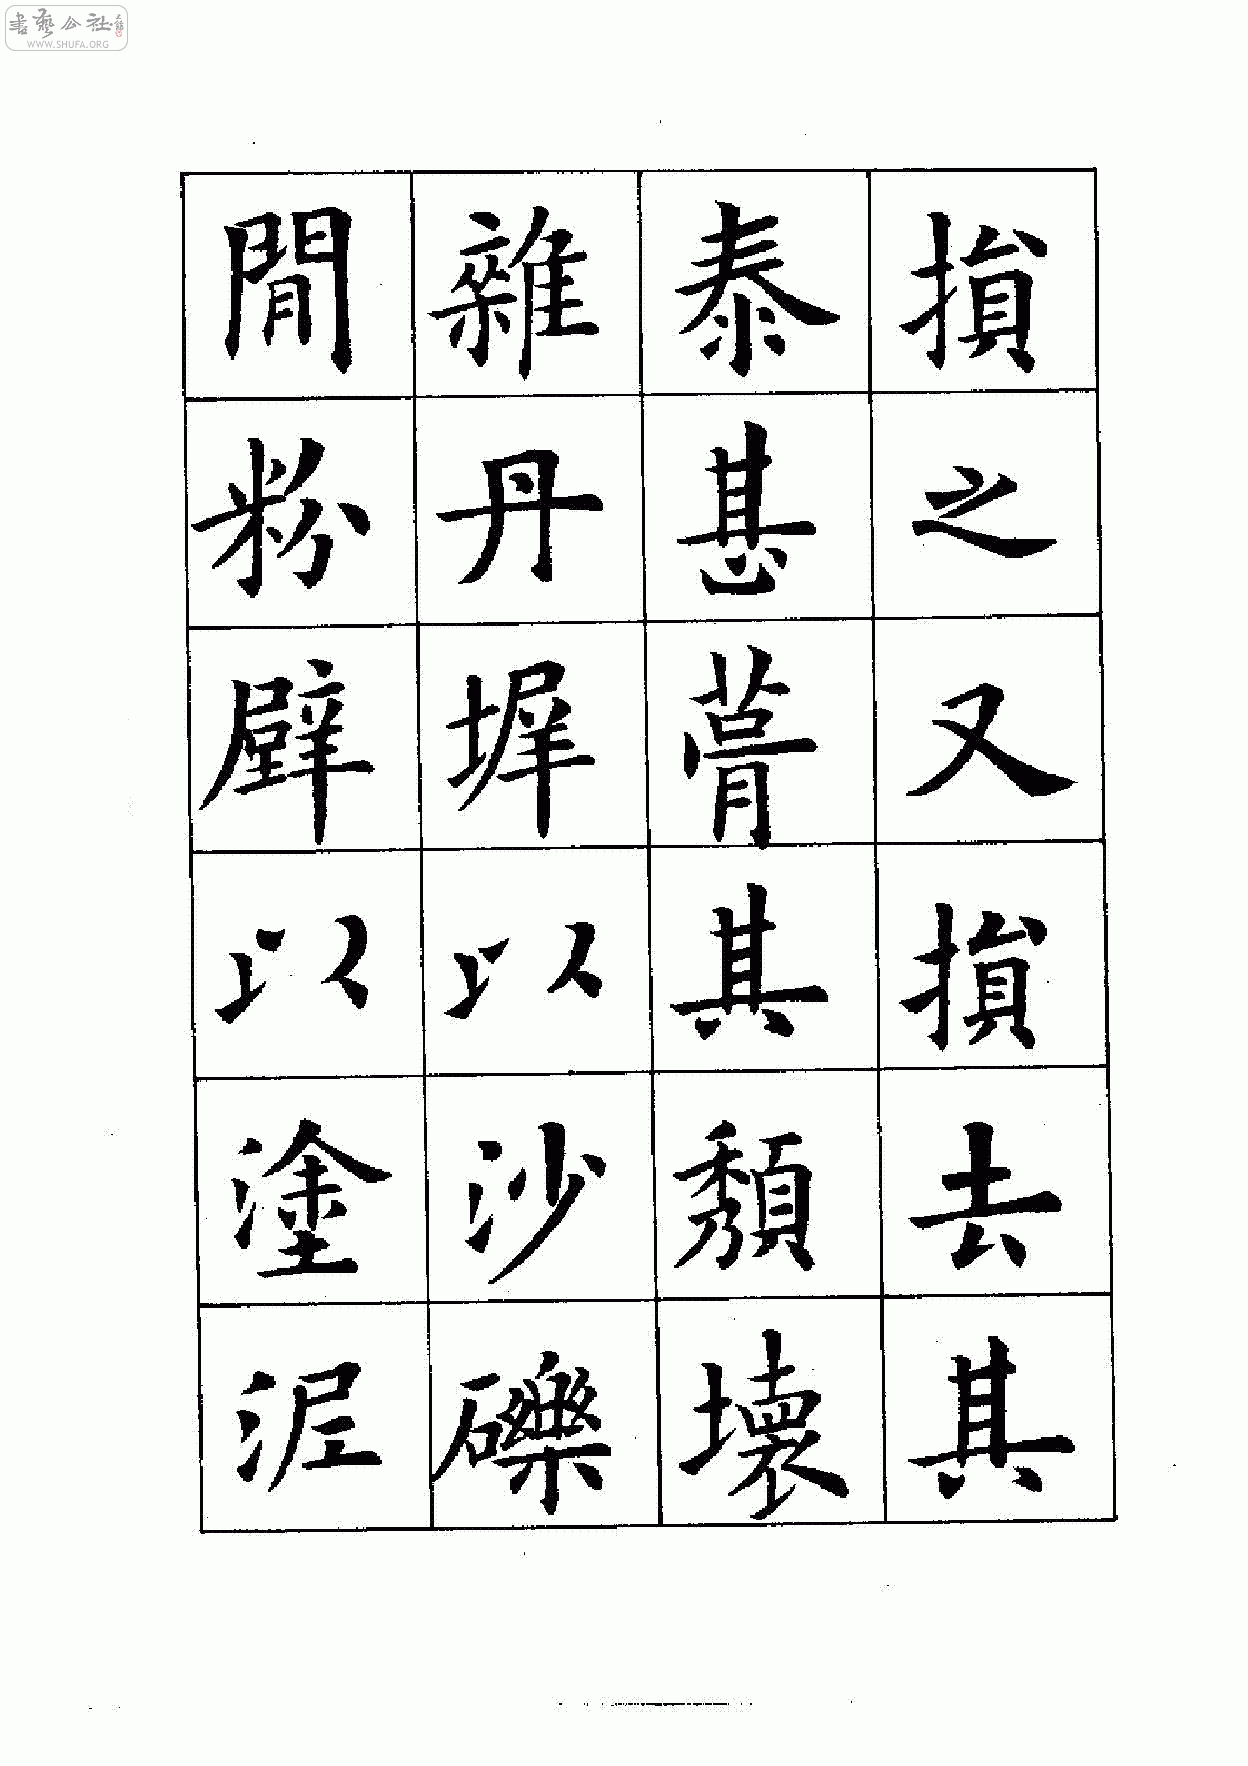 書藝公社
WWW.SHUFA.ORG
損之又損去其
泰甚葺其頹壞
雜丹墀以沙礫
閒粉壁以塗泥